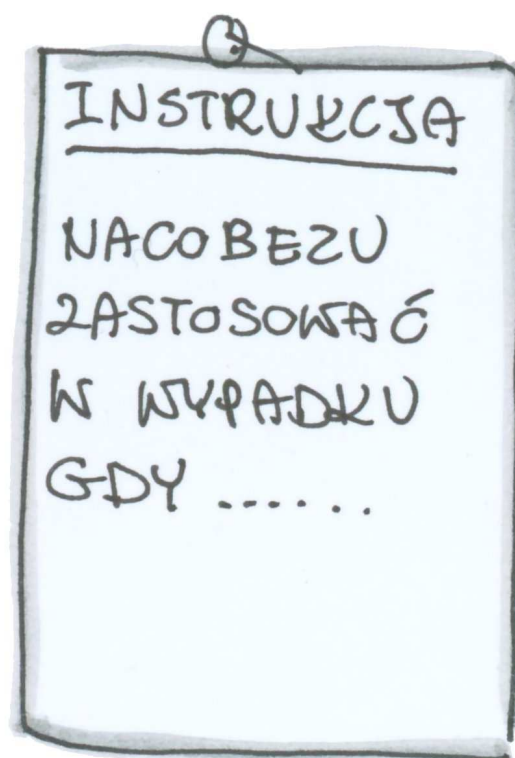 INSTRUKCJA
NACOBEZU
ZASTOSOWAĆ
W WYPADKU
GDY ......